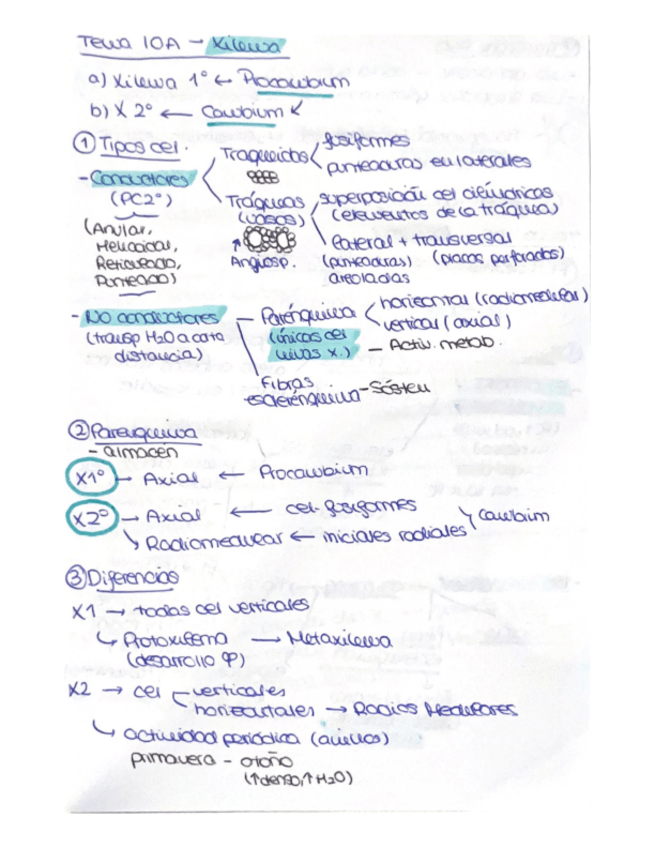 Tema 10A - Xilema
a) Xilema 1º ← Procambium
b) X 2º ← Cambium
① Tipos cel.
- Conductores
(PC2º)
(Anular,
Helicoidal,
Reticulado,
Punteado)
Traqueidas
fusiformes
punteaduras en laterales
Tráqueas
(vasos)
Angiosp.
superposición cel cilíndricas
(elementos de la tráquea)
lateral + transversal
(punteaduras) (placas perforadas)
areoladas
- No conductores
(transp H2O a corta
distancia)
Parénquima
(únicas cel
vivas x.)
horizontal (radiomedular)
vertical (axial)
- Activ. metab.
Fibras
esclerénquima - Sostén
② Parenquima
- almacén
X1º → Axial ← Procambium
X2º → Axial ← cel. fusiformes
↘ Radiomedular ← iniciales radiales
cambium
③ Diferencias
X1 → todas cel verticales
↳ Protoxilema → Metaxilema
(desarrollo φ)
X2 → cel verticales
horizontales → Radios Medulares
↳ actividad periódica (anillos)
primavera - otoño
(↑denso, ↑H2O)